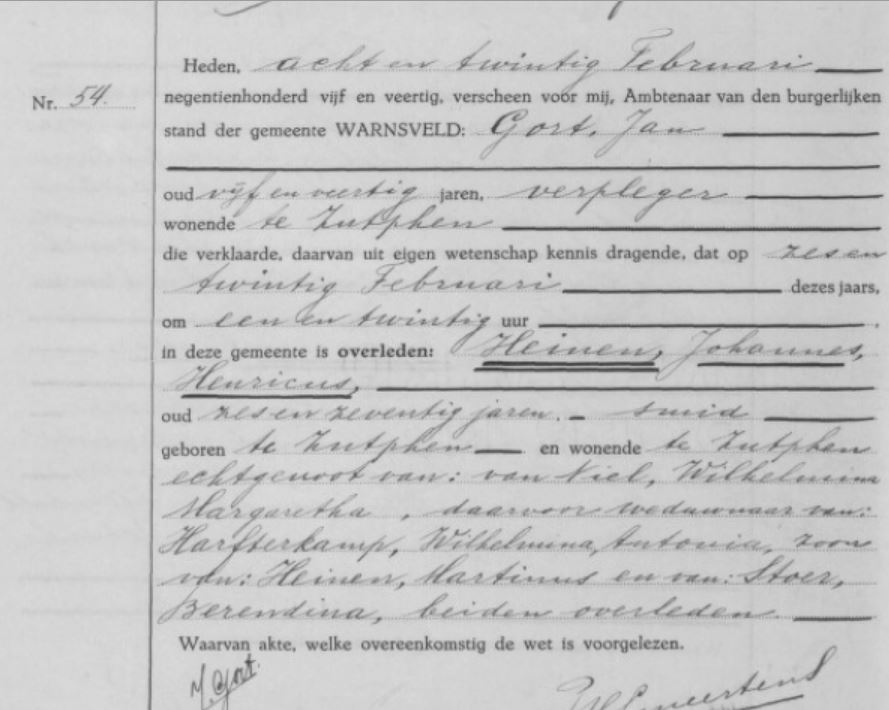 Heden, acht en twintig Februari
Nr. 54.
negentienhonderd vijf en veertig, verscheen voor mij, Ambtenaar van den burgerlijken
stand der gemeente WARNSVELD: Gort, Jan
oud vijf en veertig jaren, verpleger
wonende te Zutphen
die verklaarde, daarvan uit eigen wetenschap kennis dragende, dat op zes en
twintig Februari dezes jaars,
om een en twintig uur
in deze gemeente is overleden: Heinen, Johannes,
Henricus,
oud zes en zeventig jaren. - smid
geboren te Zutphen en wonende te Zutphen
echtgenoot van: van Niel, Wilhelmina
Margaretha, daarvoor weduwnaar van:
Harfterkamp, Wilhelmina, Antonia, zoon
van: Heinen, Martinus en van: Stoer,
Berendina, beiden overleden.
Waarvan akte, welke overeenkomstig de wet is voorgelezen.
J. Gort.